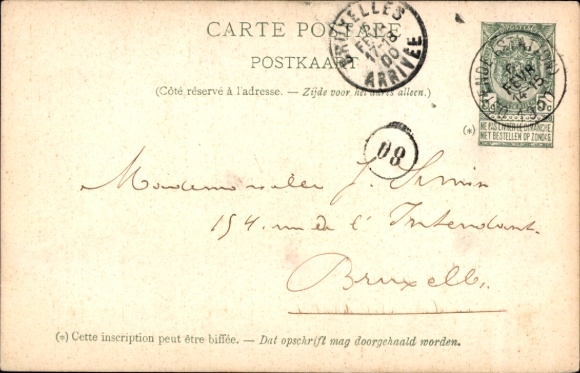 CARTE POSTALE
POSTKAART
(Côté réservé à l'adresse. — Zijde voor het adres alleen.)
BRUXELLES
17-18
00
ARRIVÉE
5
(*)
NE PAS LIVRER LE DIMANCHE
NIET BESTELLEN OP ZONDAG
08
Mademoiselle J. Simon
154. rue de l'Intendant.
Bruxelles.
(*) Cette inscription peut être biffée. — Dat opschrift mag doorgehaald worden.